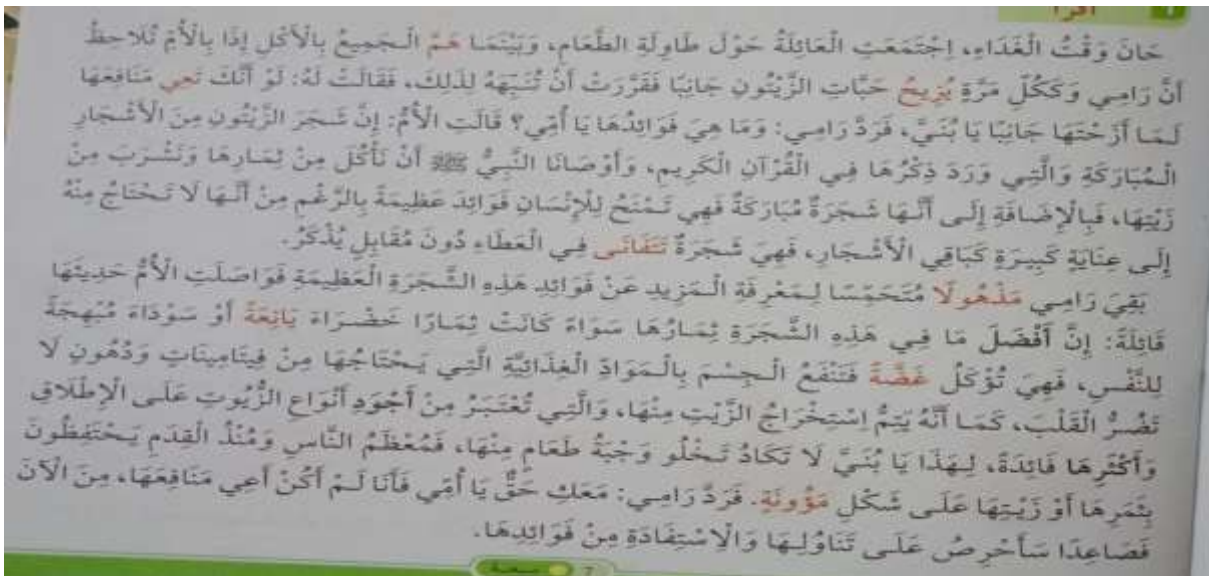 اقرأ
حَانَ وَقْتُ الْغَدَاءِ، اِجْتَمَعَتِ الْعَائِلَةُ حَوْلَ طَاوِلَةِ الطَّعَامِ، وَبَيْنَمَا هَمَّ الْجَمِيعُ بِالْأَكْلِ إِذَا بِالْأُمِّ تُلَاحِظُ
أَنَّ رَامِي وَكَكُلِّ مَرَّةٍ يُزِيحُ حَبَّاتِ الزَّيْتُونِ جَانِبًا فَقَرَّرَتْ أَنْ تُنَبِّهَهُ لِذَلِكَ، فَقَالَتْ لَهُ: لَوْ أَنَّكَ تَعِي مَنَافِعَهَا
لَمَا أَزَحْتَهَا جَانِبًا يَا بُنَيَّ، فَرَدَّ رَامِي: وَمَا هِيَ فَوَائِدُهَا يَا أُمِّي؟ قَالَتِ الْأُمُّ: إِنَّ شَجَرَ الزَّيْتُونِ مِنَ الْأَشْجَارِ
الْمُبَارَكَةِ وَالَّتِي وَرَدَ ذِكْرُهَا فِي الْقُرْآنِ الْكَرِيمِ، وَأَوْصَانَا النَّبِيُّ ﷺ أَنْ نَأْكُلَ مِنْ ثِمَارِهَا وَنَشْرَبَ مِنْ
زَيْتِهَا، فَبِالْإِضَافَةِ إِلَى أَنَّهَا شَجَرَةٌ مُبَارَكَةٌ فَهِيَ تَمْنَحُ لِلْإِنْسَانِ فَوَائِدَ عَظِيمَةً بِالرَّغْمِ مِنْ أَنَّهَا لَا تَحْتَاجُ مِنْهُ
إِلَى عِنَايَةٍ كَبِيرَةٍ كَبَاقِي الْأَشْجَارِ، فَهِيَ شَجَرَةٌ تَتَفَانَى فِي الْعَطَاءِ دُونَ مُقَابِلٍ يُذْكَرُ.
بَقِيَ رَامِي مَذْهُولًا مُتَحَمِّسًا لِمَعْرِفَةِ الْمَزِيدِ عَنْ فَوَائِدِ هَذِهِ الشَّجَرَةِ الْعَظِيمَةِ فَوَاصَلَتِ الْأُمُّ حَدِيثَهَا
قَائِلَةً: إِنَّ أَفْضَلَ مَا فِي هَذِهِ الشَّجَرَةِ ثِمَارُهَا سَوَاءً كَانَتْ ثِمَارًا خَضْرَاءَ يَانِعَةً أَوْ سَوْدَاءَ مُبْهِجَةً
لِلنَّفْسِ، فَهِيَ تُؤْكَلُ غَضَّةً فَتَنْفَعُ الْجِسْمَ بِالْمَوَادِّ الْغِذَائِيَّةِ الَّتِي يَحْتَاجُهَا مِنْ فِيتَامِينَاتٍ وَدُهُونٍ لَا
تَضُرُّ الْقَلْبَ، كَمَا أَنَّهُ يَتِمُّ اِسْتِخْرَاجُ الزَّيْتِ مِنْهَا، وَالَّتِي تُعْتَبَرُ مِنْ أَجْوَدِ أَنْوَاعِ الزُّيُوتِ عَلَى الْإِطْلَاقِ
وَأَكْثَرِهَا فَائِدَةً، لِهَذَا يَا بُنَيَّ لَا تَكَادُ تَخْلُو وَجْبَةُ طَعَامٍ مِنْهَا، فَمُعْظَمُ النَّاسِ وَمُنْذُ الْقِدَمِ يَحْتَفِظُونَ
بِثَمَرِهَا أَوْ زَيْتِهَا عَلَى شَكْلِ مَؤُونَةٍ. فَرَدَّ رَامِي: مَعَكِ حَقٌّ يَا أُمِّي فَأَنَا لَمْ أَكُنْ أَعِي مَنَافِعَهَا، مِنَ الْآنَ
فَصَاعِدًا سَأَحْرِصُ عَلَى تَنَاوُلِهَا وَالْاِسْتِفَادَةِ مِنْ فَوَائِدِهَا.
7 سبعة